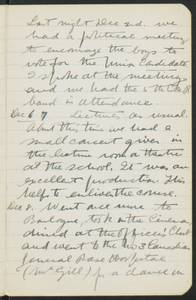 Last night Dec 2nd. we
had a political meeting
to encourage the boys to
vote for the Union Candidate
I spoke at the meeting
and we had the 5th C.M.R.
band in attendance.
Dec 6 7 Lectures as usual.
About this time we had a
small concert given in
the lecture room or theatre
at the school. It was an
excellent production. This
helps to enliven the course.
Dec 8. Went out more to
Boulogne, took in the Cinema
dined at the Officer's Club
and went to the No 3 Canadian
General Base Hospital
(McGill) for a dance in